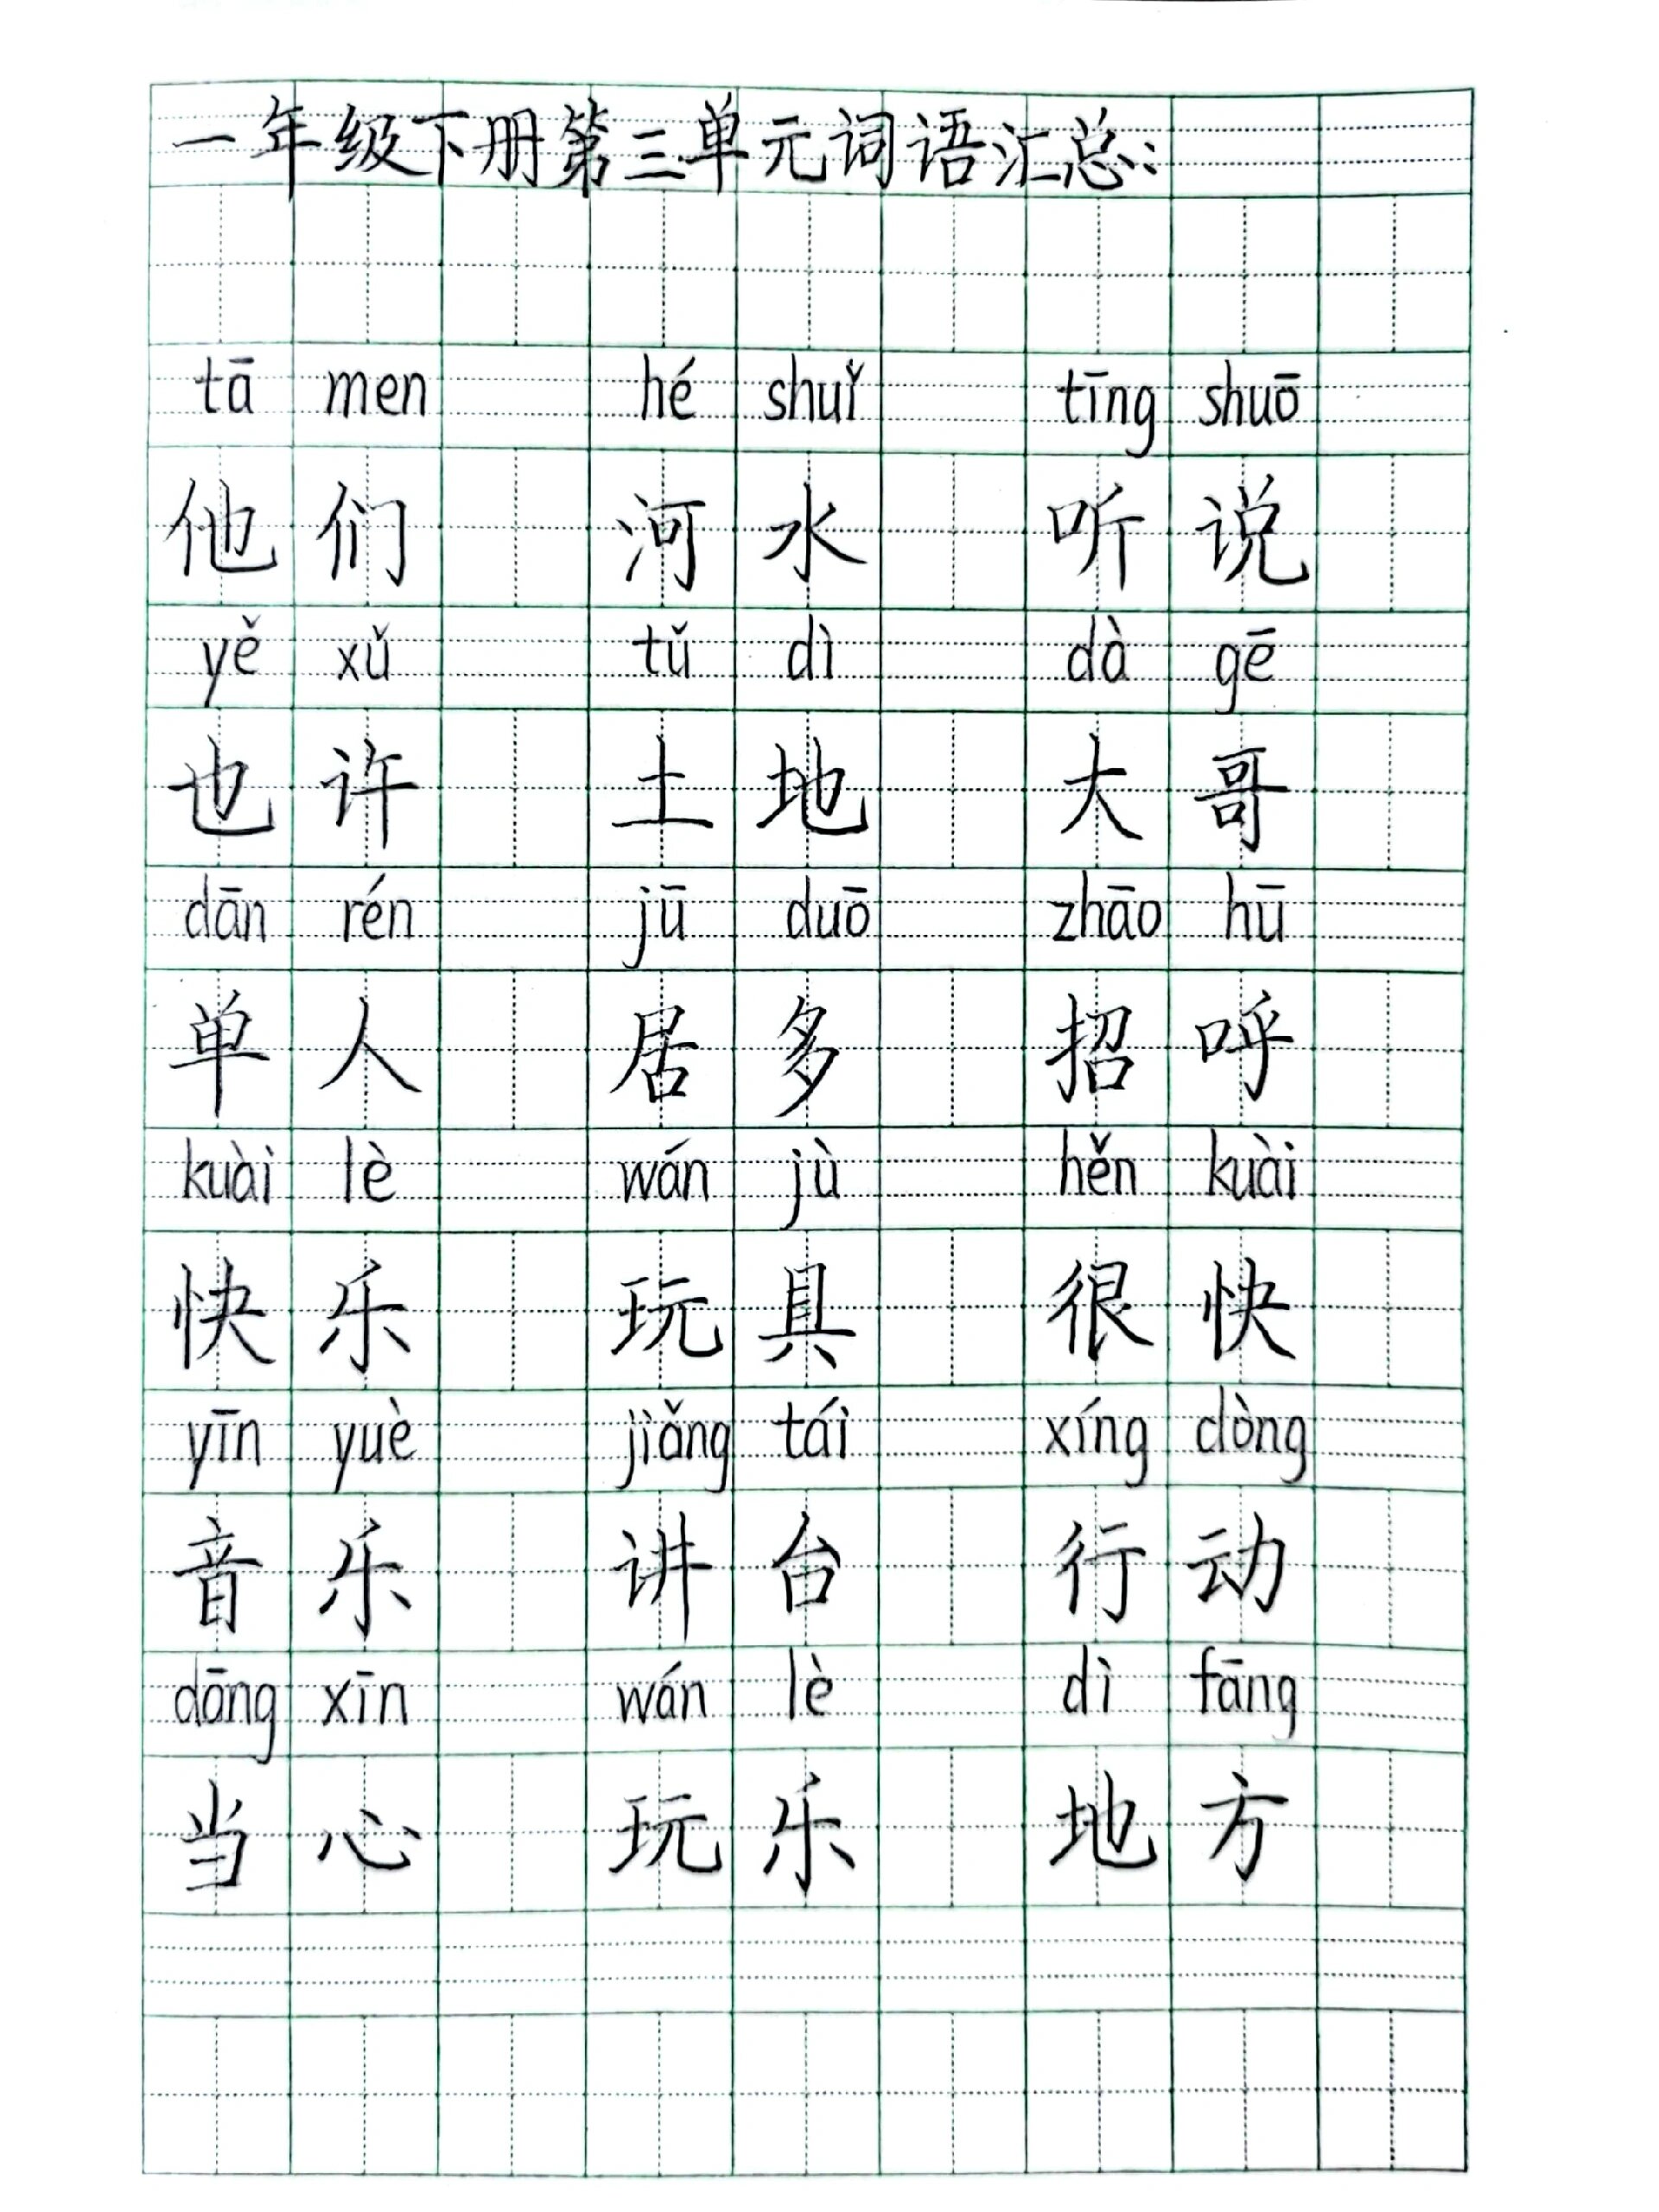 一年级下册第三单元词语汇总：
tā men hé shuǐ tīng shuō
他们 河水 听说
yě xǔ tǔ dì dà gē
也许 土地 大哥
dān rén jū duō zhāo hū
单人 居多 招呼
kuài lè wán jù hěn kuài
快乐 玩具 很快
yīn yuè jiǎng tái xíng dòng
音乐 讲台 行动
dāng xīn wán lè dì fāng
当心 玩乐 地方